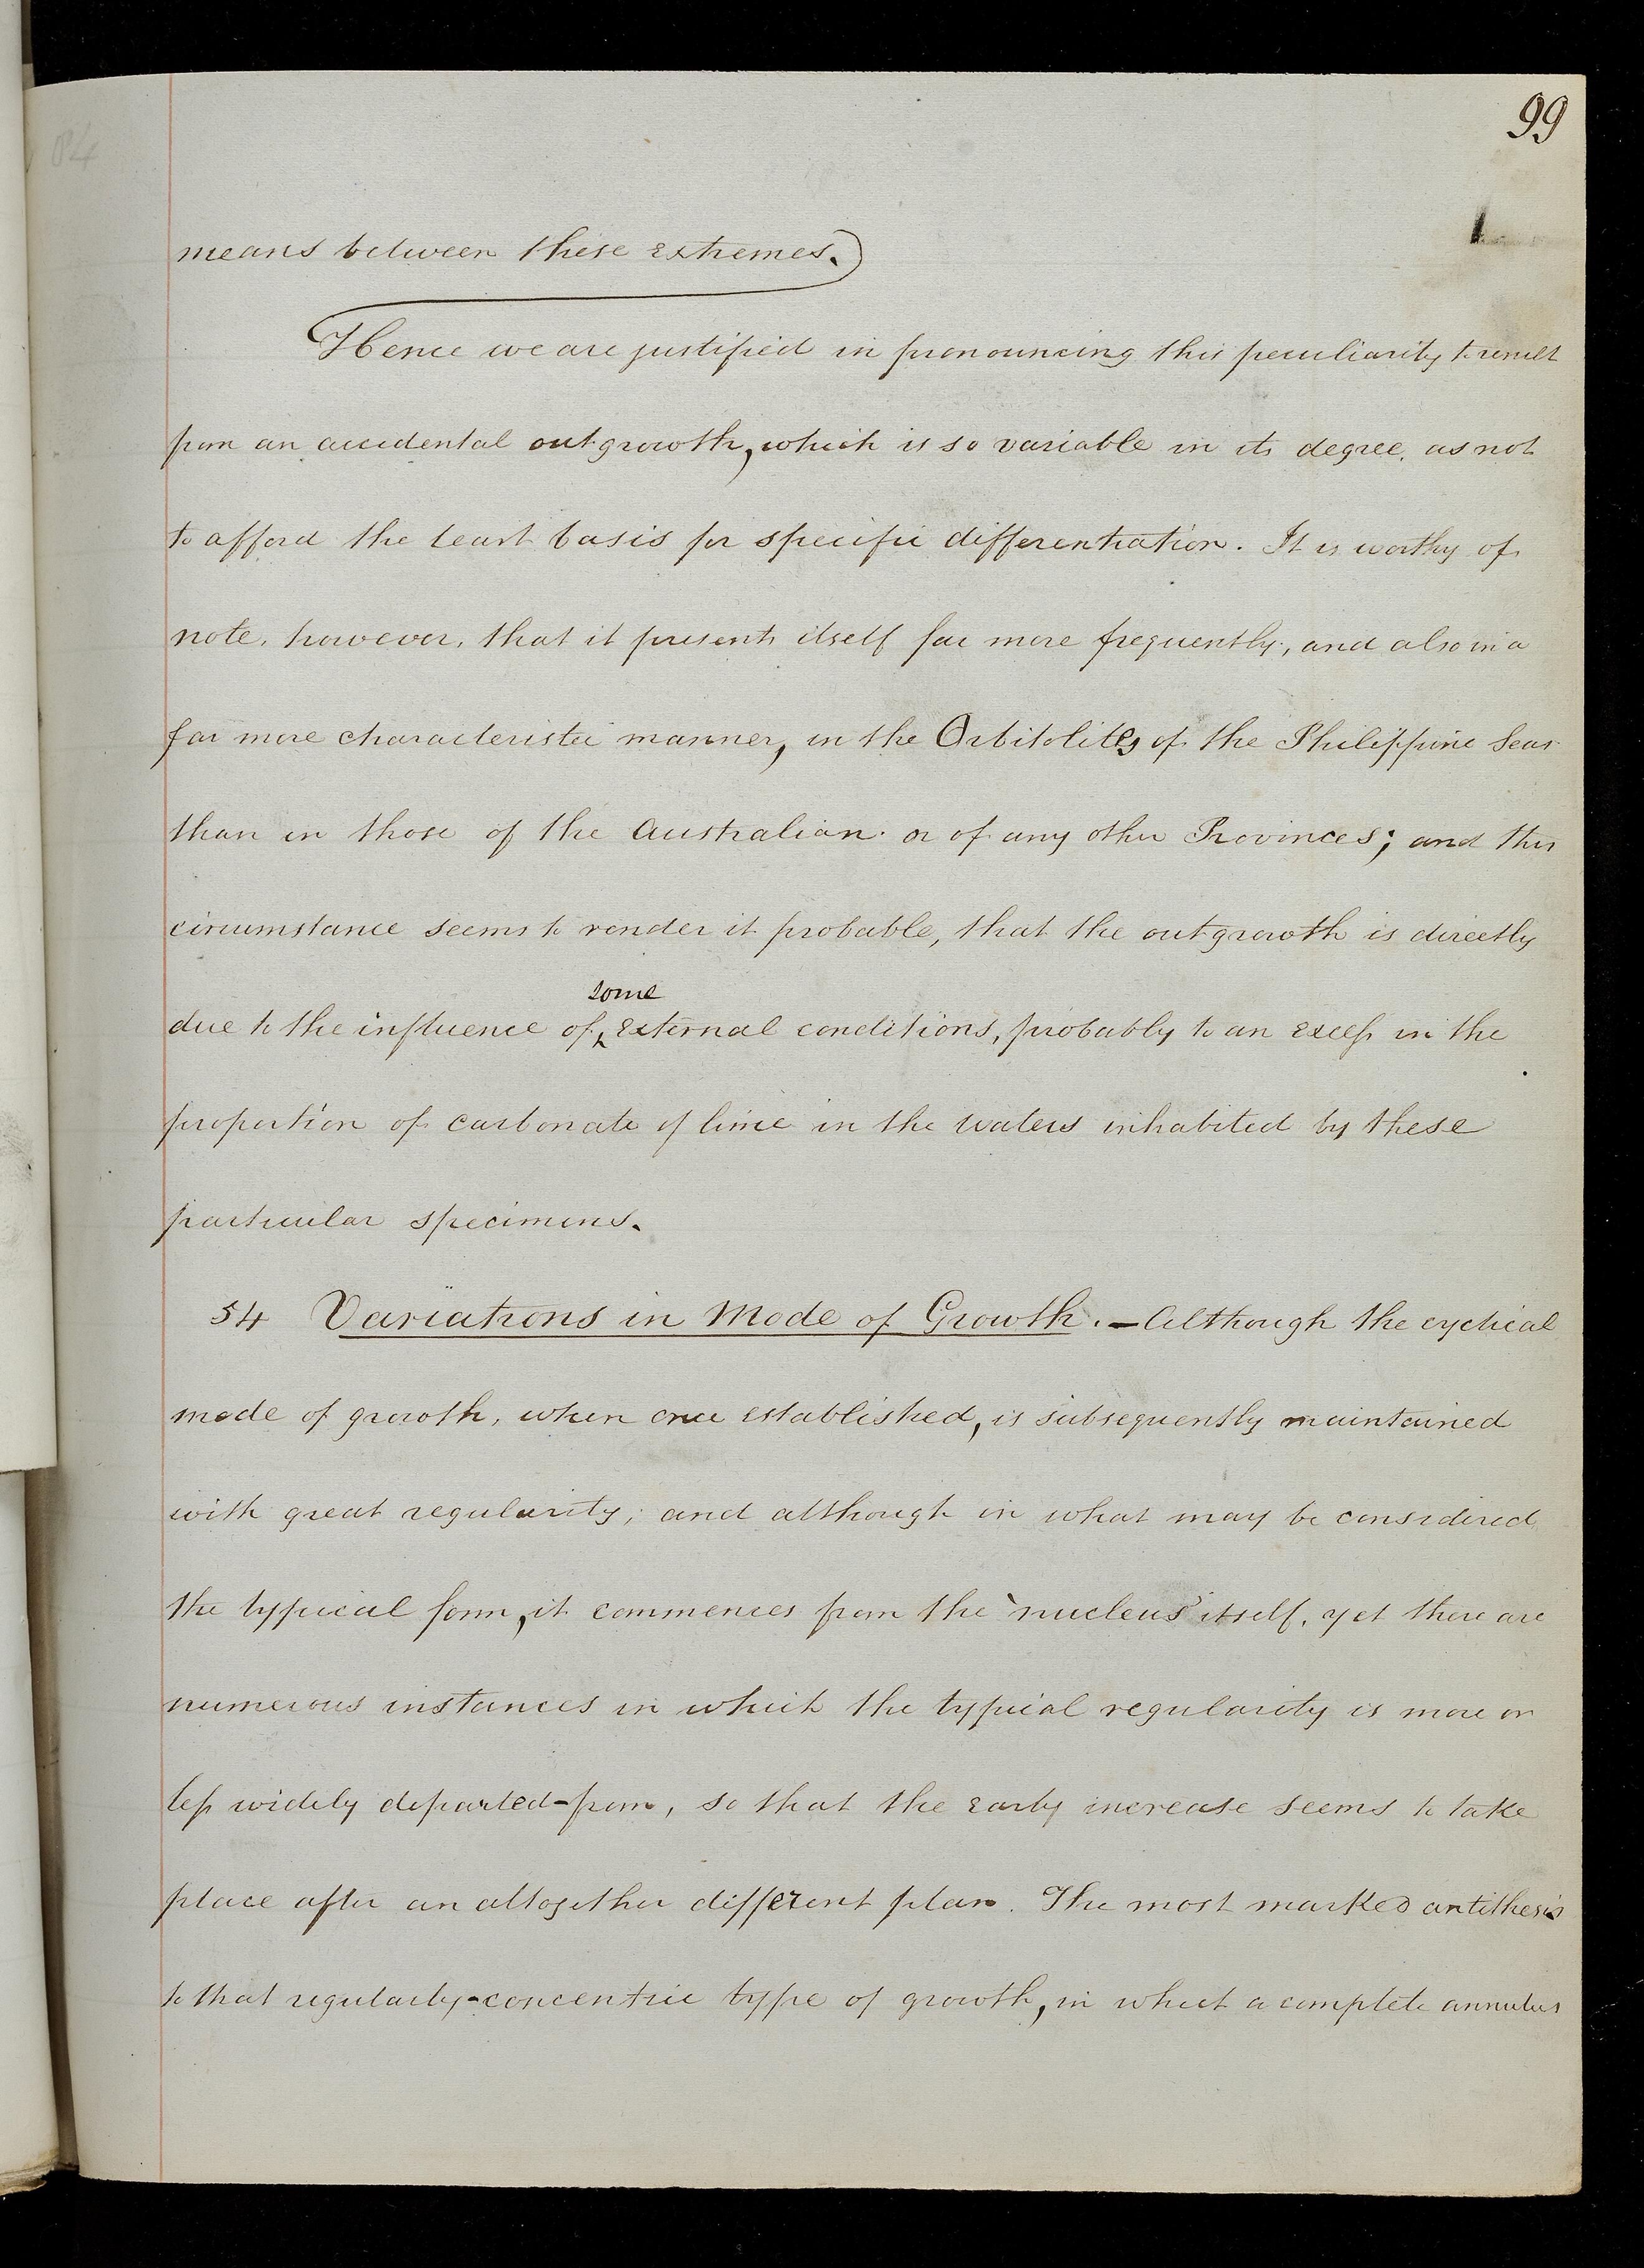 99
84
means between these extremes.
Hence we are justified in pronouncing this peculiarity to result
from an accidental outgrowth, which is so variable in its degree, as not
to afford the least basis for specific differentiation. It is worthy of
note, however, that it presents itself far more frequently, and also in a
far more characteristic manner, in the Orbitolites of the Philippine Seas
than in those of the Australian or of any other Provinces; and this
circumstance seems to render it probable, that the outgrowth is directly
some
due to the influence of external conditions, probably to an excess in the
proportion of carbonate of lime in the waters inhabited by these
particular specimens.
54 Variations in Mode of Growth. — Although the cyclical
mode of growth, when once established, is subsequently maintained
with great regularity; and although in what may be considered
the typical form, it commences from the 'nucleus' itself, yet there are
numerous instances in which the typical regularity is more or
less widely departed-from, so that the early increase seems to take
place after an altogether different plan. The most marked antithesis
to that regularly-concentric type of growth, in which a complete annulus